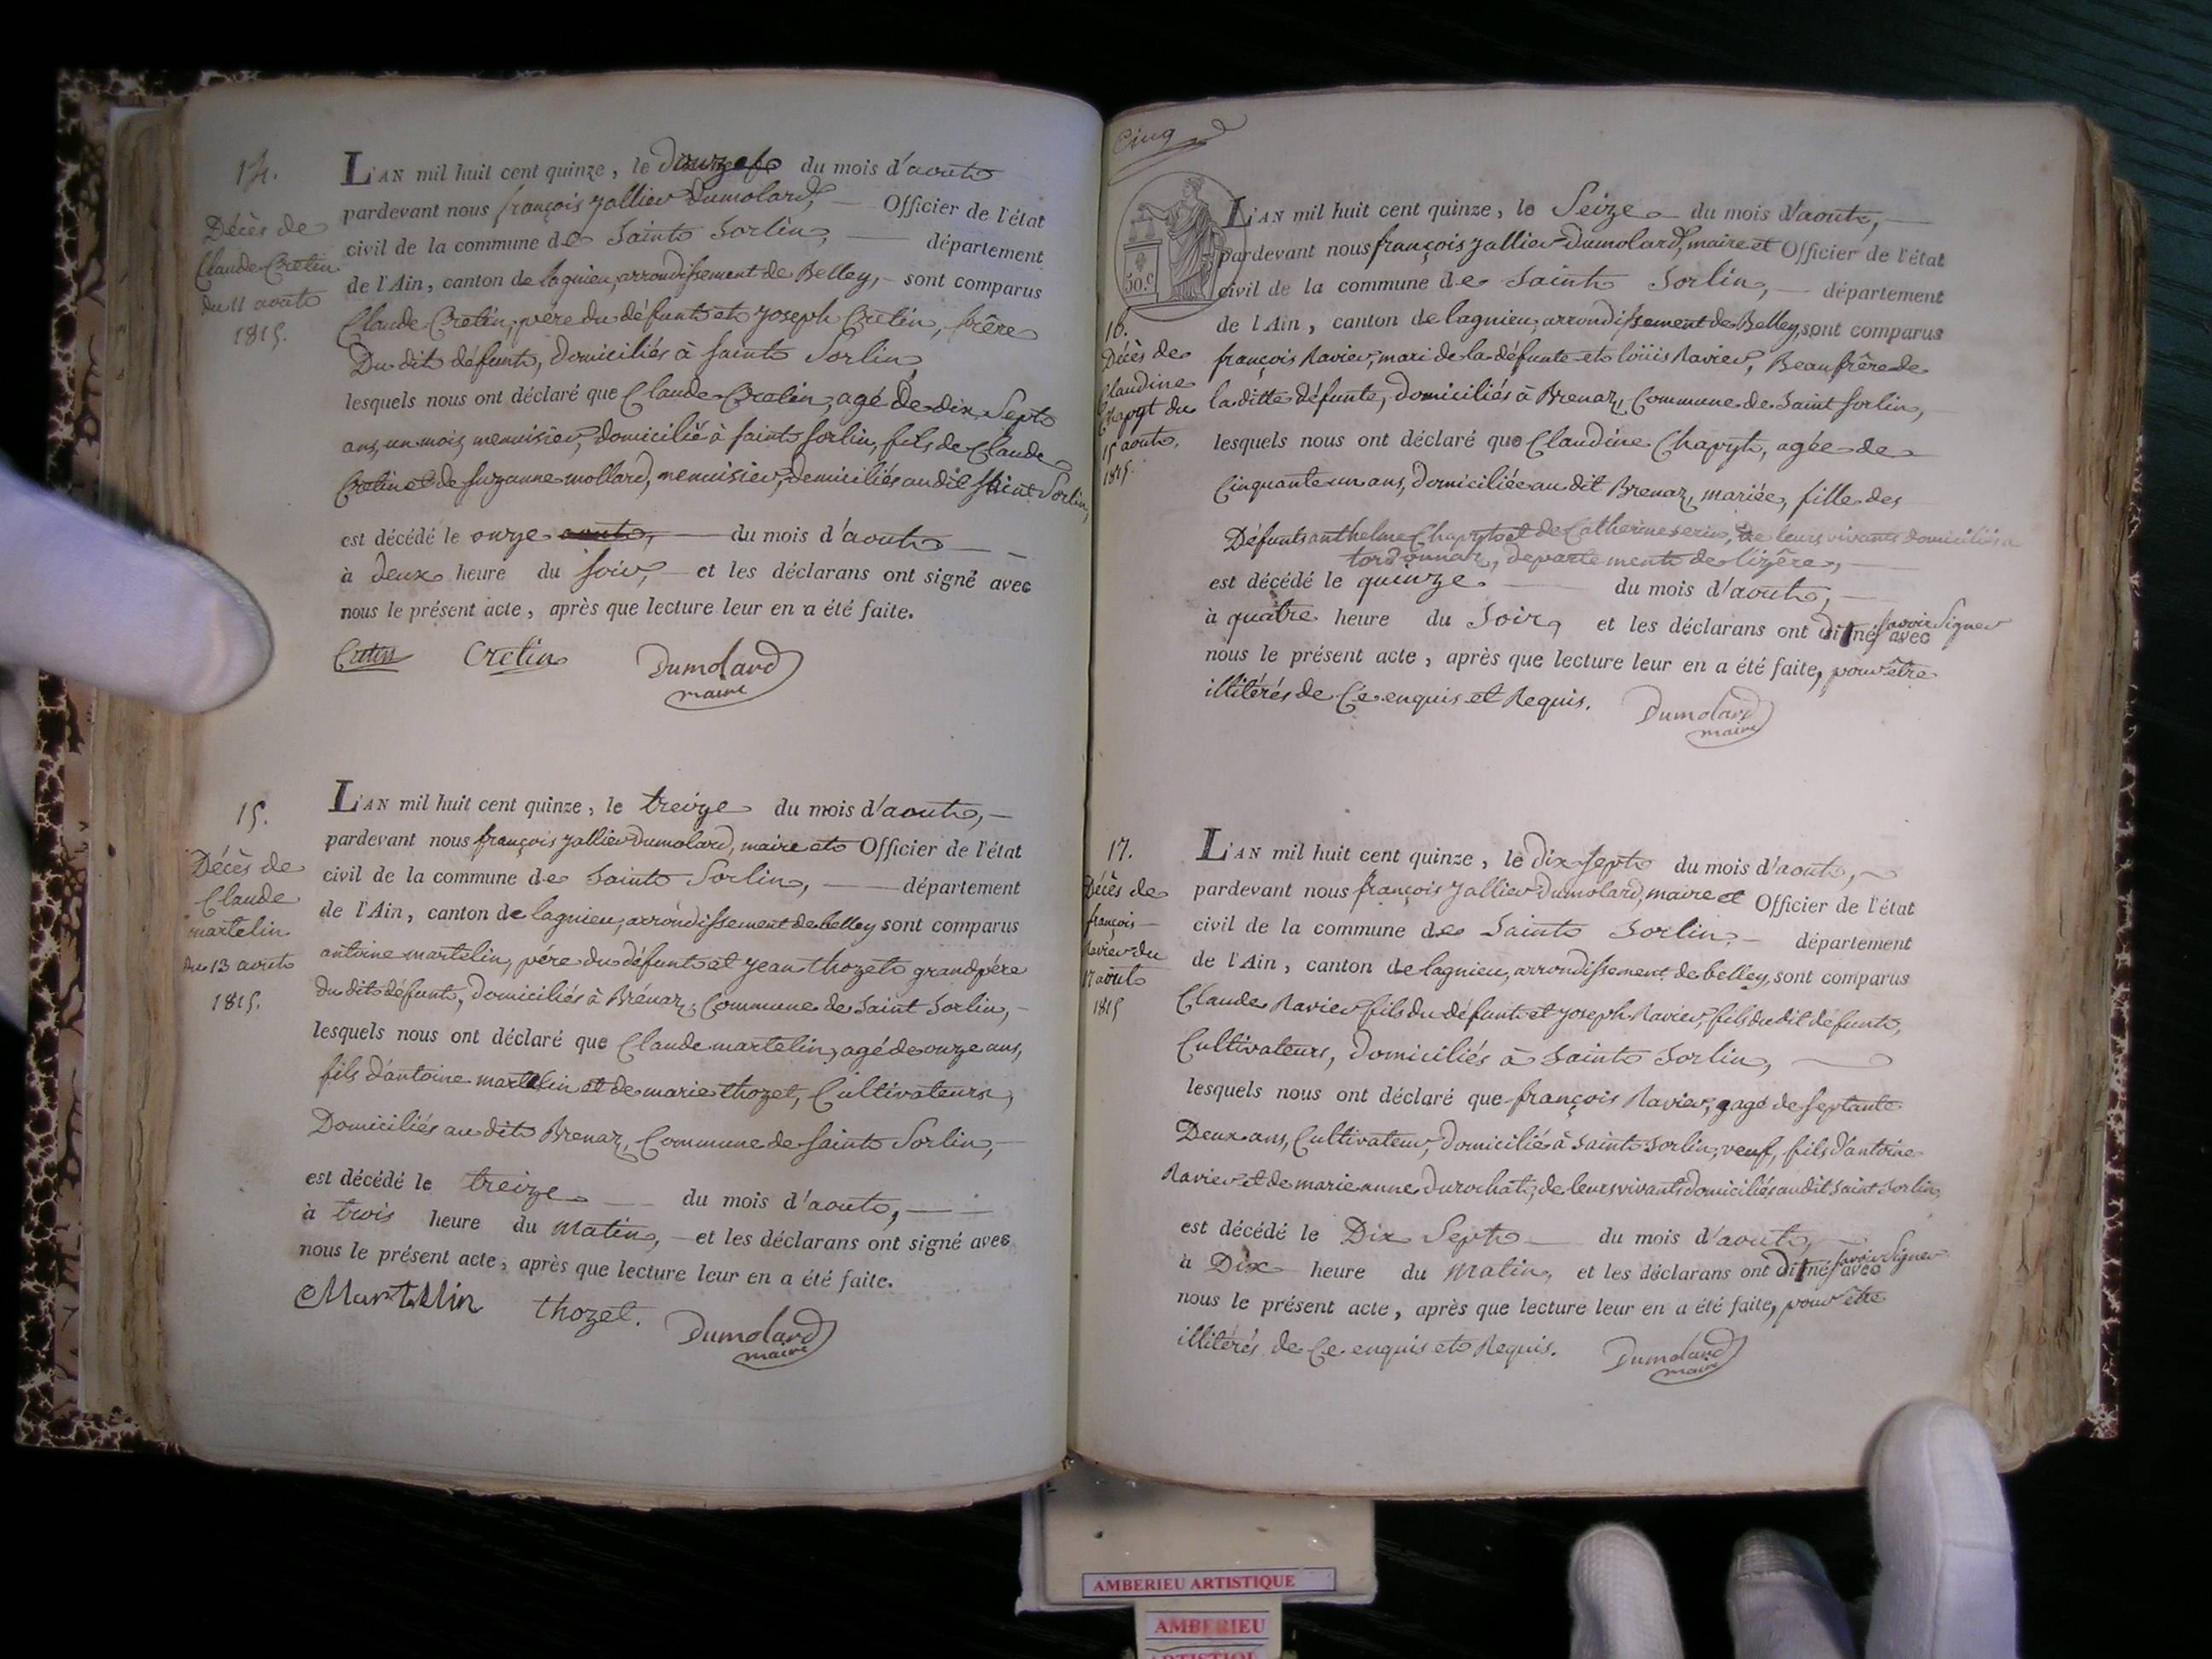 14.
Décès de
Claude Cretin
du 11 aout
1815.
L'AN mil huit cent quinze, le douze du mois d'aout
pardevant nous françois Jallier Dumolard, Officier de l'état
civil de la commune de Saint Sorlin, département
de l'Ain, canton de lagnieu, arrondissement de Belley, sont comparus
Claude Cretin, père du défunt et joseph Cretin, frère
Du dit défunt, domiciliés à saint Sorlin,
lesquels nous ont déclaré que Claude Cretin, agé de dix Sept
ans, un mois, menuisier, domicilié à saint sorlin, fils de Claude
Cretin et de suzanne mollard, menuisier, domiciliés audit Saint Sorlin,
est décédé le onze aout, du mois d'aout
à deux heure du soir, et les déclarans ont signé avec
nous le présent acte, après que lecture leur en a été faite.
Cretin Cretin Dumolard
maire
15.
Décès de
Claude
martelin
du 13 aout
1815.
L'AN mil huit cent quinze, le treize du mois d'aout,
pardevant nous françois Jallier Dumolard, maire et Officier de l'état
civil de la commune de Saint Sorlin, département
de l'Ain, canton de lagnieu, arrondissement de belley sont comparus
antoine martelin, père du défunt et jean thozet grand père
du dit défunt, domiciliés à Brénaz, Commune de Saint Sorlin,
lesquels nous ont déclaré que Claude martelin, agé de onze ans,
fils d'antoine martelin et de marie thozet, Cultivateurs,
Domiciliés au dit Brenaz, Commune de saint Sorlin,
est décédé le treize du mois d'aout,
à trois heure du matin, et les déclarans ont signé avec
nous le présent acte, après que lecture leur en a été faite.
Martelin thozet. Dumolard
maire
Cinq
50.c
16.
Décès de
Claudine
Chapyt du
15 aout,
1815.
L'AN mil huit cent quinze, le Seize du mois d'aout,
pardevant nous françois Jallier Dumolard, maire et Officier de l'état
civil de la commune de Saint Sorlin, département
de l'Ain, canton de lagnieu, arrondissement de Belley, sont comparus
françois Ravier, mari de la défunte et loüis Ravier, Beaufrêre de
la ditte défunte, domiciliés à Brenaz, Commune de Saint Sorlin,
lesquels nous ont déclaré que Claudine Chapyt, agée de
Cinquante un ans, domiciliée au dit Brenaz, mariée, fille des
Défunts anthelme Chapyt et de Catherine serin, de leurs vivants domiciliés à
departement de lizère,
est décédé le quinze du mois d'aout,
à quatre heure du Soir, et les déclarans ont dit ne savoir Signer avec
nous le présent acte, après que lecture leur en a été faite, pour être
illitérés de Ce enquis et Requis. Dumolard
maire
17.
Décès de
françois
Ravier du
17 aout
1815
L'AN mil huit cent quinze, le dix sept du mois d'aout,
pardevant nous françois Jallier Dumolard, maire et Officier de l'état
civil de la commune de Saint Sorlin, département
de l'Ain, canton de lagnieu, arrondissement de belley, sont comparus
Claude Ravier fils du défunt et joseph Ravier, fils du dit défunt,
Cultivateurs, domiciliés à Saint Sorlin,
lesquels nous ont déclaré que françois Ravier, agé de septante
Deux ans, Cultivateur, domicilié à Saint Sorlin, veuf, fils d'antoine
Ravier et de marie anne Durochat, de leurs vivants domiciliés audit Saint Sorlin,
est décédé le Dix Sept du mois d'aout,
à Dix heure du matin, et les déclarans ont dit ne savoir Signer avec
nous le présent acte, après que lecture leur en a été faite, pour être
illitérés de Ce enquis et Requis. Dumolard
maire
AMBERIEU ARTISTIQUE
AMBERIEU
ARTISTIQUE